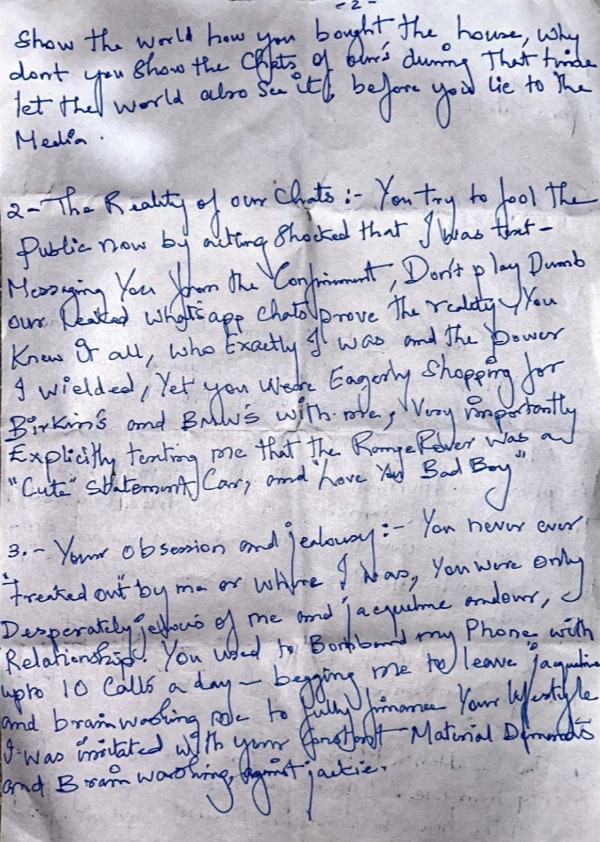 -2-
Show the world how you bought the house, why
dont you show the chats of our's during that time
let the world also see it, before you lie to the
Media.
2- The Reality of our Chats :- You try to fool the
public now by acting shocked that I was text-
Messaging You from the Confinment, Don't play Dumb
our leaked whatsapp chats prove the reality, You
Knew It all, who Exactly I was and the power
I wielded, Yet you were Eagerly Shopping for
Birkin's and BMW's with me, Very importantly
Explicitly texting me that the RangeRover was a
"Cute" statement Car, and "Love You Bad Boy"
3.- Your obsession and jealousy:- You never ever
"freaked out" by me or where I was, You were only
Desperately jealous of me and jacqueline and our,
Relationship. You used to Bombard my Phone with
upto 10 Calls a day - begging me to leave jacqueline
and brainwashing me to fully finance Your lifestyle
I was irritated with your constant Material Demands
and Brainwashing, against jackie.